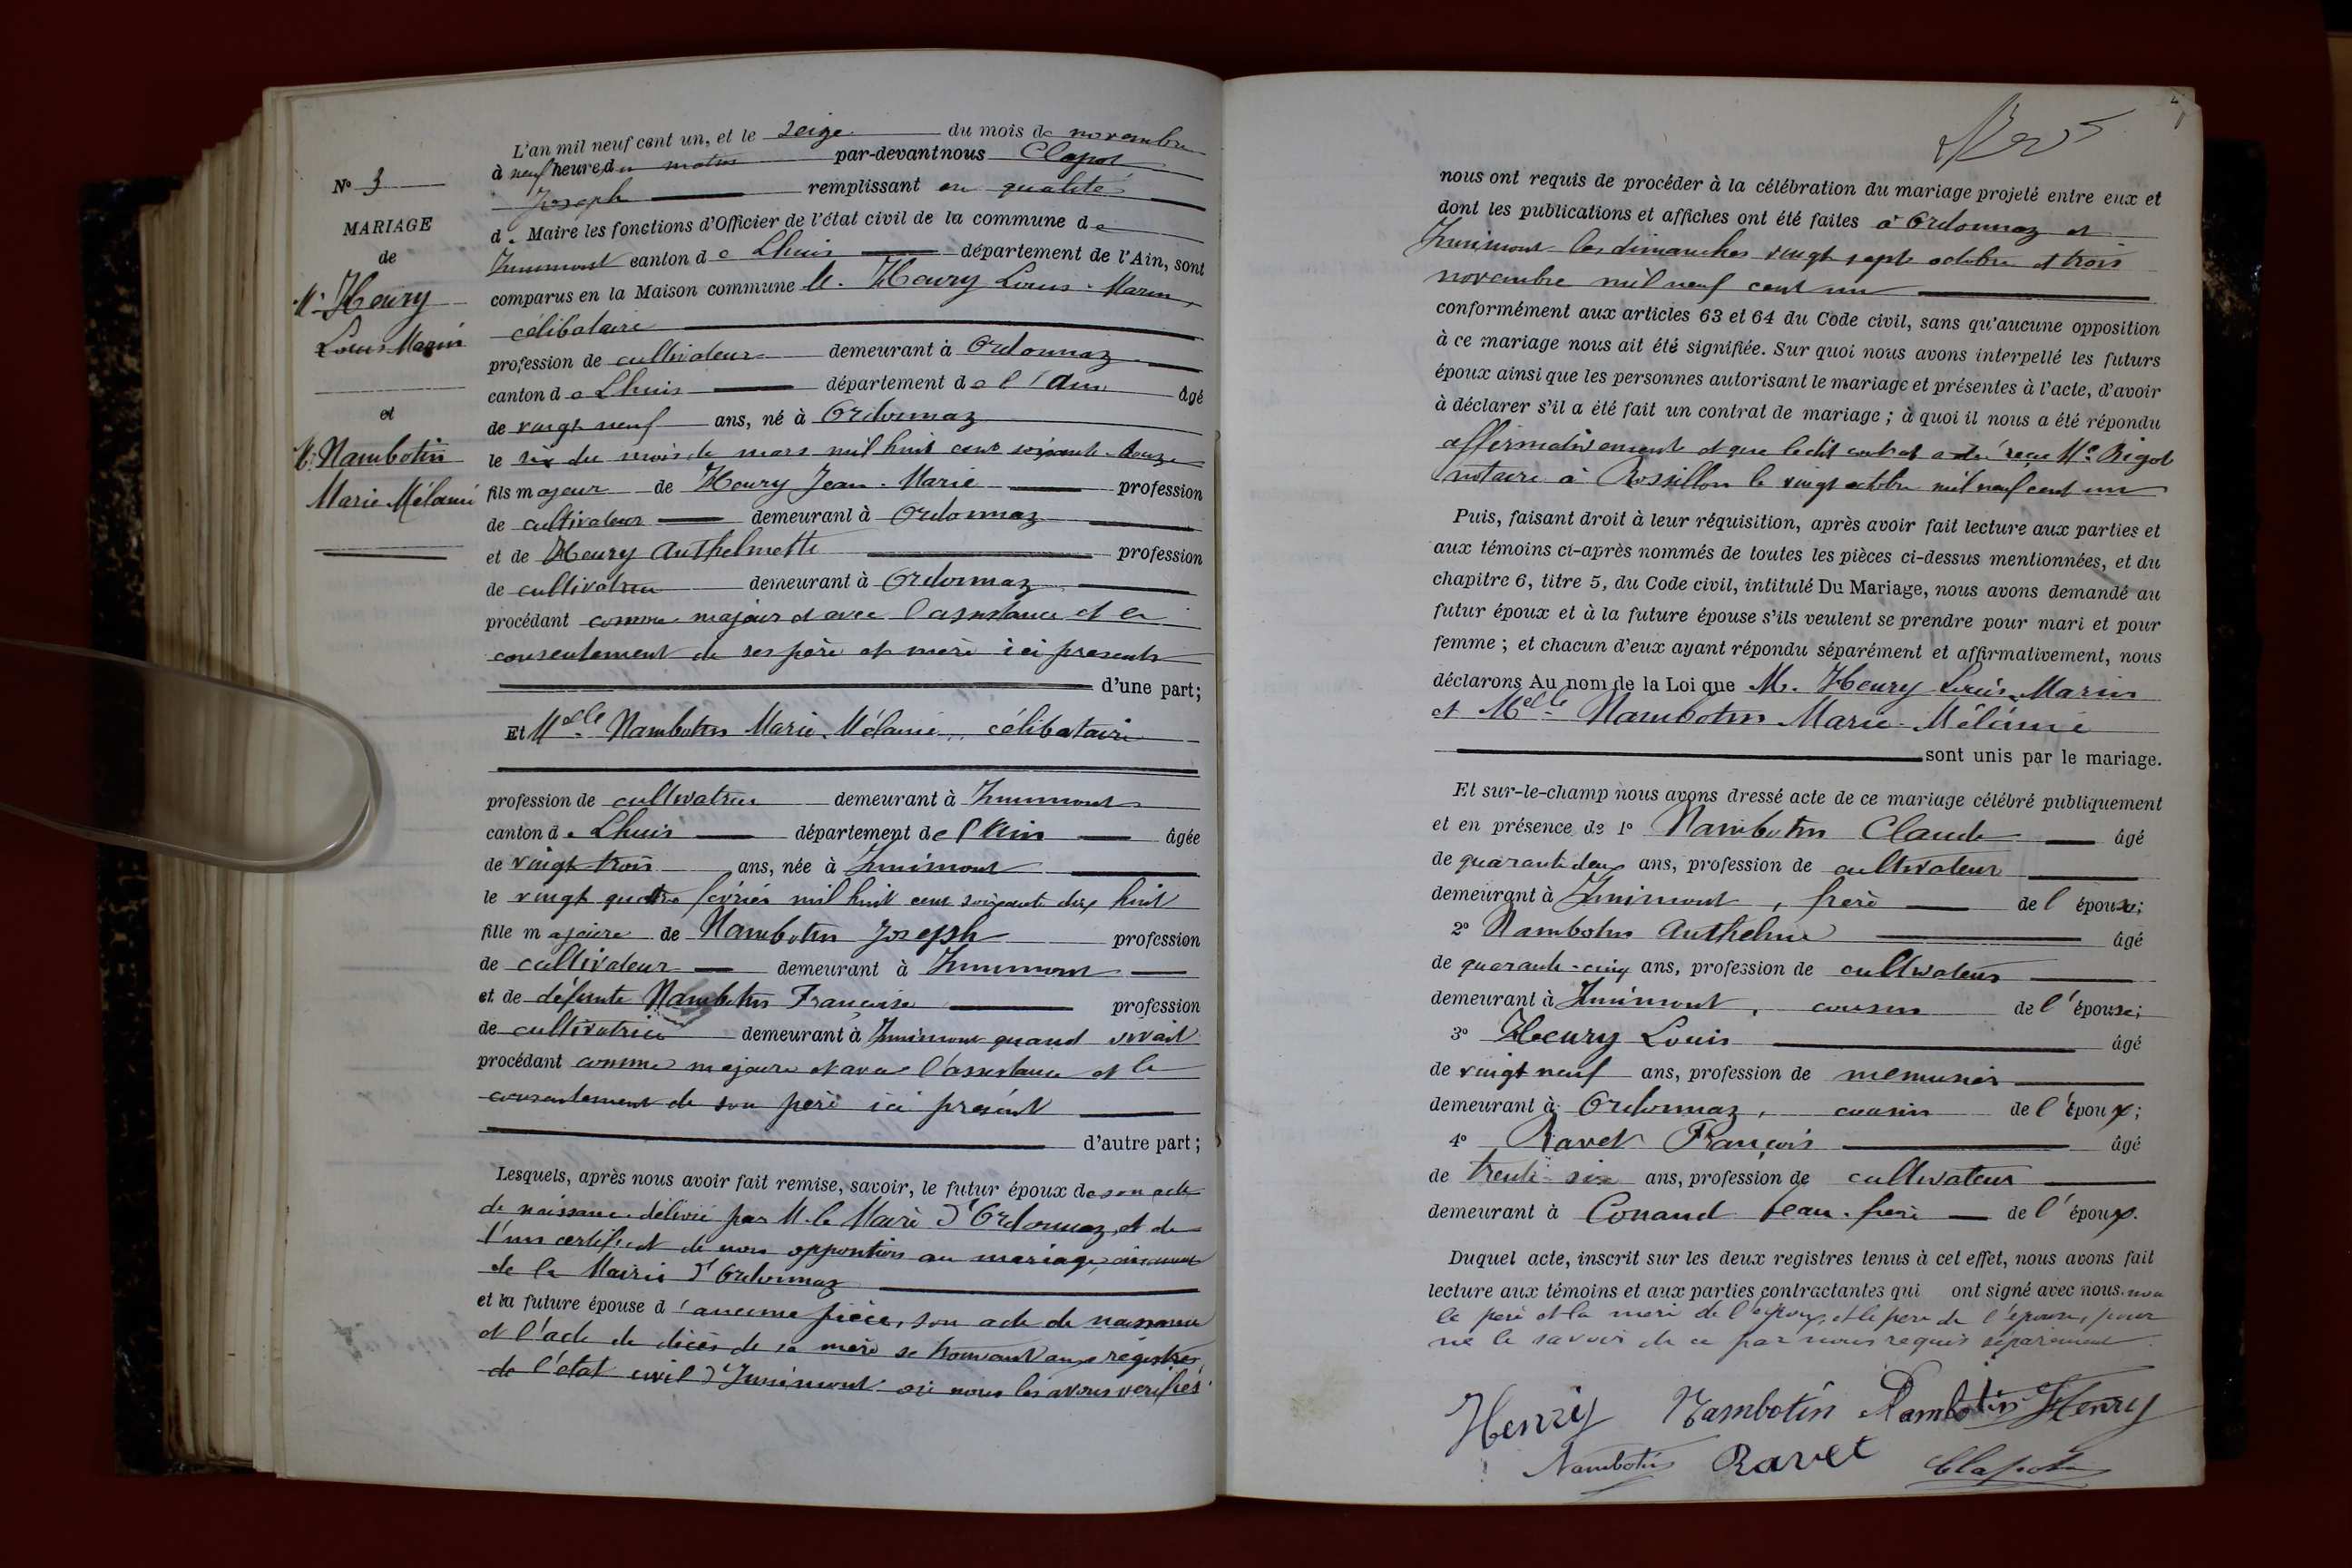 L'an mil neuf cent un, et le seize du mois de novembre
à neuf heure du matin par-devant nous Clapot
Joseph remplissant en qualité
de Maire les fonctions d'Officier de l'état civil de la commune de
Innimont canton de Lhuis département de l'Ain, sont
comparus en la Maison commune M. Heury Louis-Marin,
célibataire
profession de cultivateur demeurant à Ordonnaz
canton de Lhuis département de l'Ain âgé
de vingt neuf ans, né à Ordonnaz
le six du mois de mars mil huit cent soixante-douze
fils majeur de Heury Jean-Marie profession
de cultivateur demeurant à Ordonnaz
et de Heury Anthelmette profession
de cultivatrice demeurant à Ordonnaz
procédant comme majeur et avec l'assistance et le
consentement de ses père et mère ici présents
d'une part;
Et Melle Nambotin Marie-Mélanie, célibataire
profession de cultivatrice demeurant à Innimont
canton de Lhuis département de l'Ain âgée
de vingt trois ans, née à Innimont
le vingt quatre février mil huit cent soixante dix huit
fille majeure de Nambotin Joseph profession
de cultivateur demeurant à Innimont
et de défunte Nambotin Françoise profession
de cultivatrice demeurant à Innimont quand vivait
procédant comme majeure et avec l'assistance et le
consentement de son père ici présent
d'autre part;
Lesquels, après nous avoir fait remise, savoir, le futur époux de son acte
de naissance délivré par M. le Maire d'Ordonnaz, et de
l'un certificat de non opposition au mariage, émanant
de la Mairie d'Ordonnaz
et la future épouse d'aucune pièce, son acte de naissance
et l'acte de décès de sa mère se trouvant aux registres
de l'état civil d'Innimont où nous les avons vérifiés
No 3
MARIAGE
de
Mr Heury
Louis Marin
et
Melle Nambotin
Marie Mélanie
nous ont requis de procéder à la célébration du mariage projeté entre eux et
dont les publications et affiches ont été faites à Ordonnaz et
Innimont les dimanches vingt sept octobre et trois
novembre mil neuf cent un
conformément aux articles 63 et 64 du Code civil, sans qu'aucune opposition
à ce mariage nous ait été signifiée. Sur quoi nous avons interpellé les futurs
époux ainsi que les personnes autorisant le mariage et présentes à l'acte, d'avoir
à déclarer s'il a été fait un contrat de mariage; à quoi il nous a été répondu
affirmativement et que ledit contrat a été reçu Me Rigot
notaire à Rossillon le vingt octobre mil neuf cent un
Puis, faisant droit à leur réquisition, après avoir fait lecture aux parties et
aux témoins ci-après nommés de toutes les pièces ci-dessus mentionnées, et du
chapitre 6, titre 5, du Code civil, intitulé Du Mariage, nous avons demandé au
futur époux et à la future épouse s'ils veulent se prendre pour mari et pour
femme; et chacun d'eux ayant répondu séparément et affirmativement, nous
déclarons Au nom de la Loi que M. Heury Louis Marin
et Melle Nambotin Marie-Mélanie
sont unis par le mariage.
Et sur-le-champ nous avons dressé acte de ce mariage célébré publiquement
et en présence de 1o Nambotin Claude âgé
de quarante deux ans, profession de cultivateur
demeurant à Innimont, frère de l'épouse;
2o Nambotin Anthelme âgé
de quarante-cinq ans, profession de cultivateur
demeurant à Innimont, cousin de l'épouse;
3o Heury Louis âgé
de vingt neuf ans, profession de menuisier
demeurant à Ordonnaz, cousin de l'époux;
4o Ravet François âgé
de trente-six ans, profession de cultivateur
demeurant à Conand beau-frère de l'époux.
Duquel acte, inscrit sur les deux registres tenus à cet effet, nous avons fait
lecture aux témoins et aux parties contractantes qui ont signé avec nous, non
le père et la mère de l'époux, et le père de l'épouse, pour
ne le savoir de ce par nous requis séparément.
Henry Nambotin Nambotin Henry
Nambotin Ravet Clapot